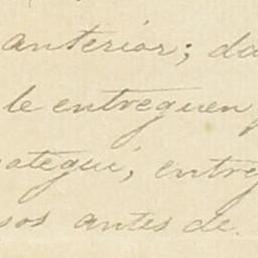 anterior; da
le entreguen
ategui, entreg
sos antes de